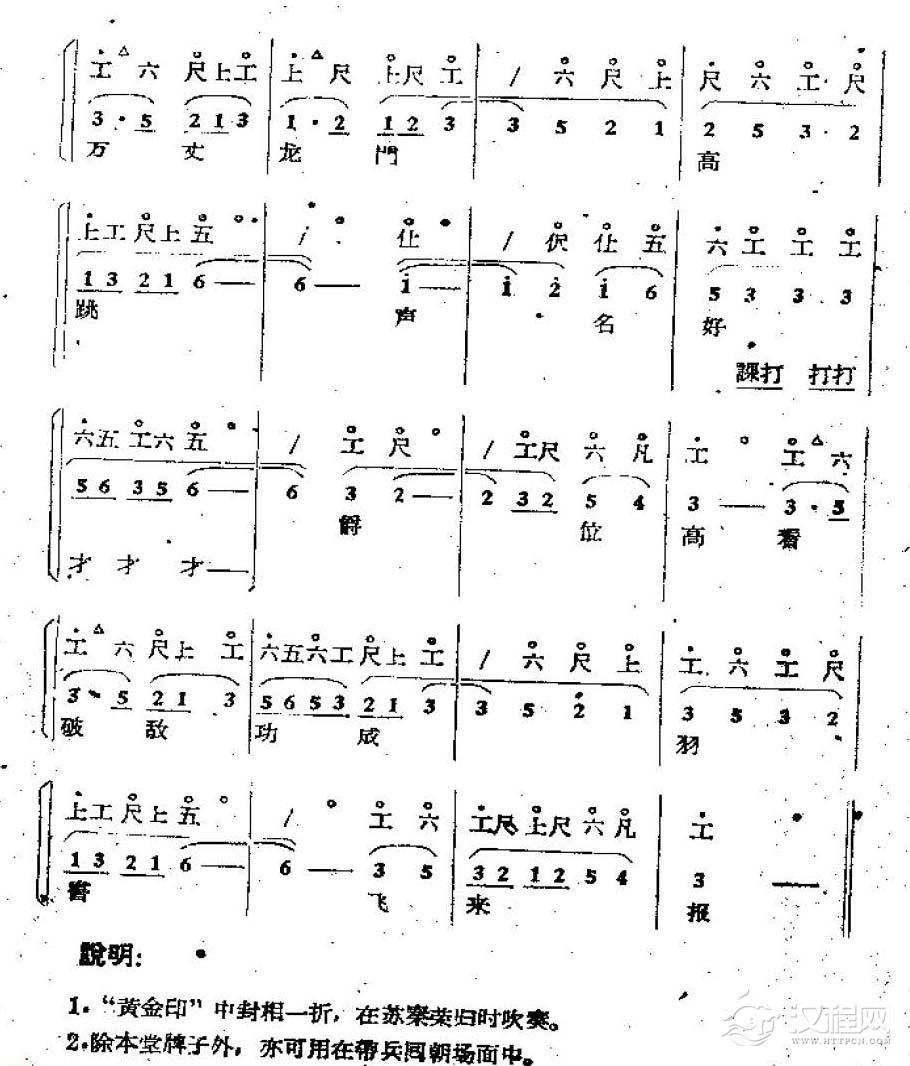 工 六 尺上工 上 尺 上尺 工 / 六 尺 上 尺 六 工 尺
3 · 5 2 1 3 1 · 2 1 2 3 3 5 2 1 2 5 3 · 2
万 丈 龙 門 高
上工尺上五 / 仩 / 伬 仩 五 六 工 工 工
1 3 2 1 6 — 6 — 1 — 1 2 1 6 5 3 3 3
跳 声 名 好
課打 打打
六五工六五 / 工 尺 / 工尺 六 凡 工 工 六
5 6 3 5 6 — 6 3 2 — 2 3 2 5 4 3 — 3 · 5
爵 位 高 看
才 才 才—
工 六 尺上 工 六五六工尺上 工 / 六 尺 上 工 六 工 尺
3 · 5 2 1 3 5 6 5 3 2 1 3 3 5 2 1 3 5 3 2
破 敌 功 成 羽
上工尺上五 / 工 六 工尺上尺六凡 工
1 3 2 1 6 — 6 — 3 5 3 2 1 2 5 4 3 —
飞 来 报
說明:
1."黄金印"中封相一折,在苏秦荣归时吹奏。
2.除本堂牌子外,亦可用在帶兵囘朝场面中。
汉程网
HTTPCN.COM